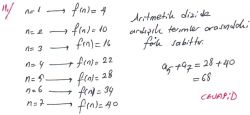 11/ n=1 → f(n)=4
n=2 → f(n)=10
n=3 → f(n)=16
n=4 → f(n)=22
n=5 → f(n)=28
n=6 → f(n)=34
n=7 → f(n)=40
Aritmetik dizide
ardışık terimler arasındaki
fark sabittir.
a₅+a₇=28+40
=68
CEVAP:D